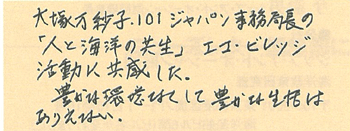 大塚万紗子.IOIジャパン事務局長の
「人と海洋の共生」エコ・ビレッジ
活動に共感した。
豊かな環境なくして豊かな生活は
ありえない。